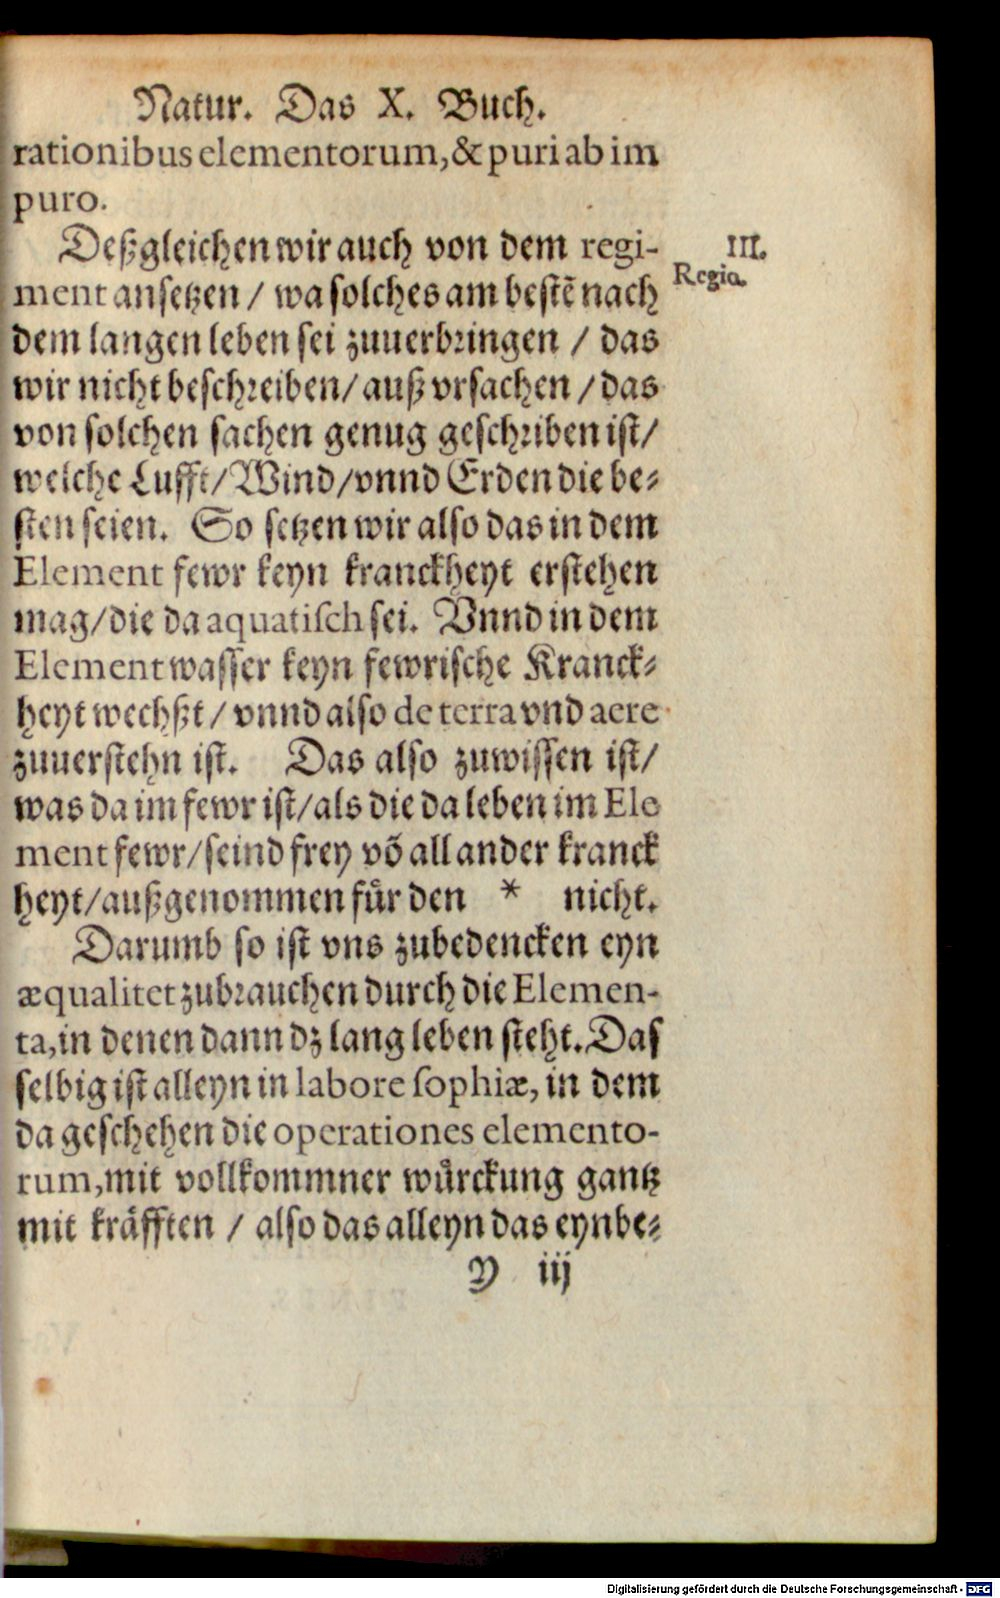 Natur. Das X. Buch.
rationibus elementorum, & puri ab im
puro.
Deßgleichen wir auch von dem regi-
III.
Regio.
ment ansetzen / wa solches am bestẽ nach
dem langen leben sei zuuerbringen / das
wir nicht beschreiben / auß vrsachen / das
von solchen sachen genug geschriben ist /
welche Lufft / Wind / vnnd Erden die be-
sten seien. So setzen wir also das in dem
Element fewr keyn kranckheyt erstehen
mag / die da aquatisch sei. Vnnd in dem
Element wasser keyn fewrische Kranck-
heyt wechßt / vnnd also de terra vnd aere
zuuerstehn ist. Das also zuwissen ist /
was da im fewr ist / als die da leben im Ele
ment fewr / seind frey võ all ander kranck
heyt / außgenommen fůr den * nicht.
Darumb so ist vns zubedencken eyn
æqualitet zubrauchen durch die Elemen-
ta, in denen dann dz lang leben steht. Das
selbig ist alleyn in labore sophiæ, in dem
da geschehen die operationes elemento-
rum, mit vollkommner wůrckung gantz
mit kräfften / also das alleyn das eynbe-
Y iij
Digitalisierung gefördert durch die Deutsche Forschungsgemeinschaft - DFG